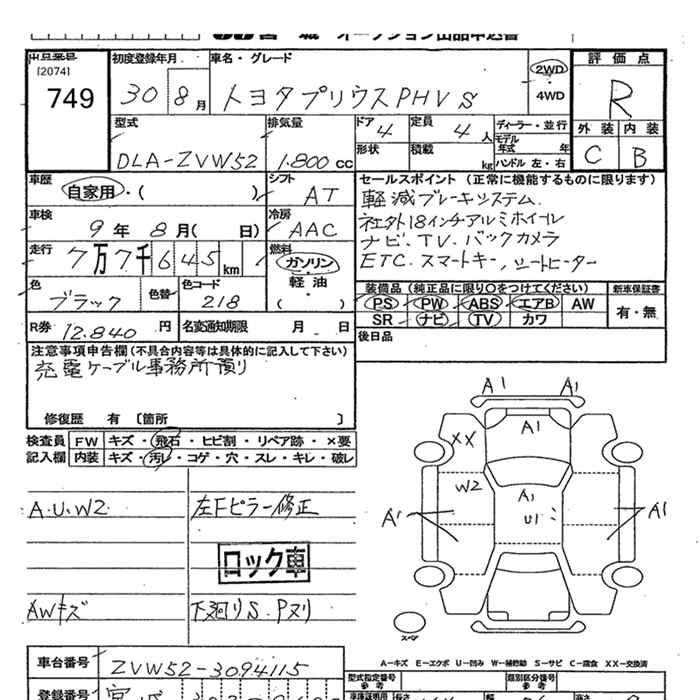 出品番号
[2074]
749
初度登録年月
30 8月
車名・グレード
トヨタプリウスPHV S
2WD
4WD
評価点
R
外装 内装
C B
型式
DLA-ZVW52
排気量
1.800 cc
ドア
4
定員
4人
ディーラー・並行
モデル
年式 年
形状
積載
kg
ハンドル 左・右
車歴
自家用・( )
シフト
AT
車検
9年 8月( 日)
冷房
AAC
走行
7万7千645km
燃料
ガソリン
軽油
( )
色
ブラック
色替
色コード
218
R券
12.840円
名変通知期限 月 日
セールスポイント (正常に機能するものに限ります)
軽減ブレーキシステム
社外18インチアルミホイール
ナビ、TV、バックカメラ
ETC、スマートキー、シートヒーター
装備品 (純正品に限り○をつけてください)
新車保証書
PS PW ABS エアB AW
SR ナビ TV カワ
有・無
後日品
注意事項申告欄(不具合内容等は具体的に記入して下さい)
充電ケーブル事務所預り
修復歴 有 〔箇所 〕
検査員
記入欄
FW キズ・飛石・ヒビ割・リペア跡・×要
内装 キズ・汚レ・コゲ・穴・スレ・キレ・破レ
A.U.W2
左Fピラー修正
ロック車
AWキズ
下廻りS.Pヌリ
A1 A1
XX A1
W2 A1
U1
A1 A1
スペア
A-キズ E-エクボ U-凹み W-補修跡 S-サビ C-腐食 XX-交換済
車台番号
ZVW52-3094115
型式指定番号
参考
類別区分番号
参考
登録番号
宮城